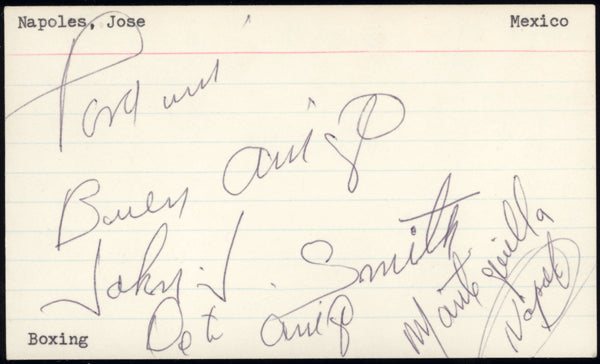 Napoles, Jose Mexico
Para mi
Buen amigo
John J. Smith
De tu amigo
Mantequilla
Napoles
Boxing